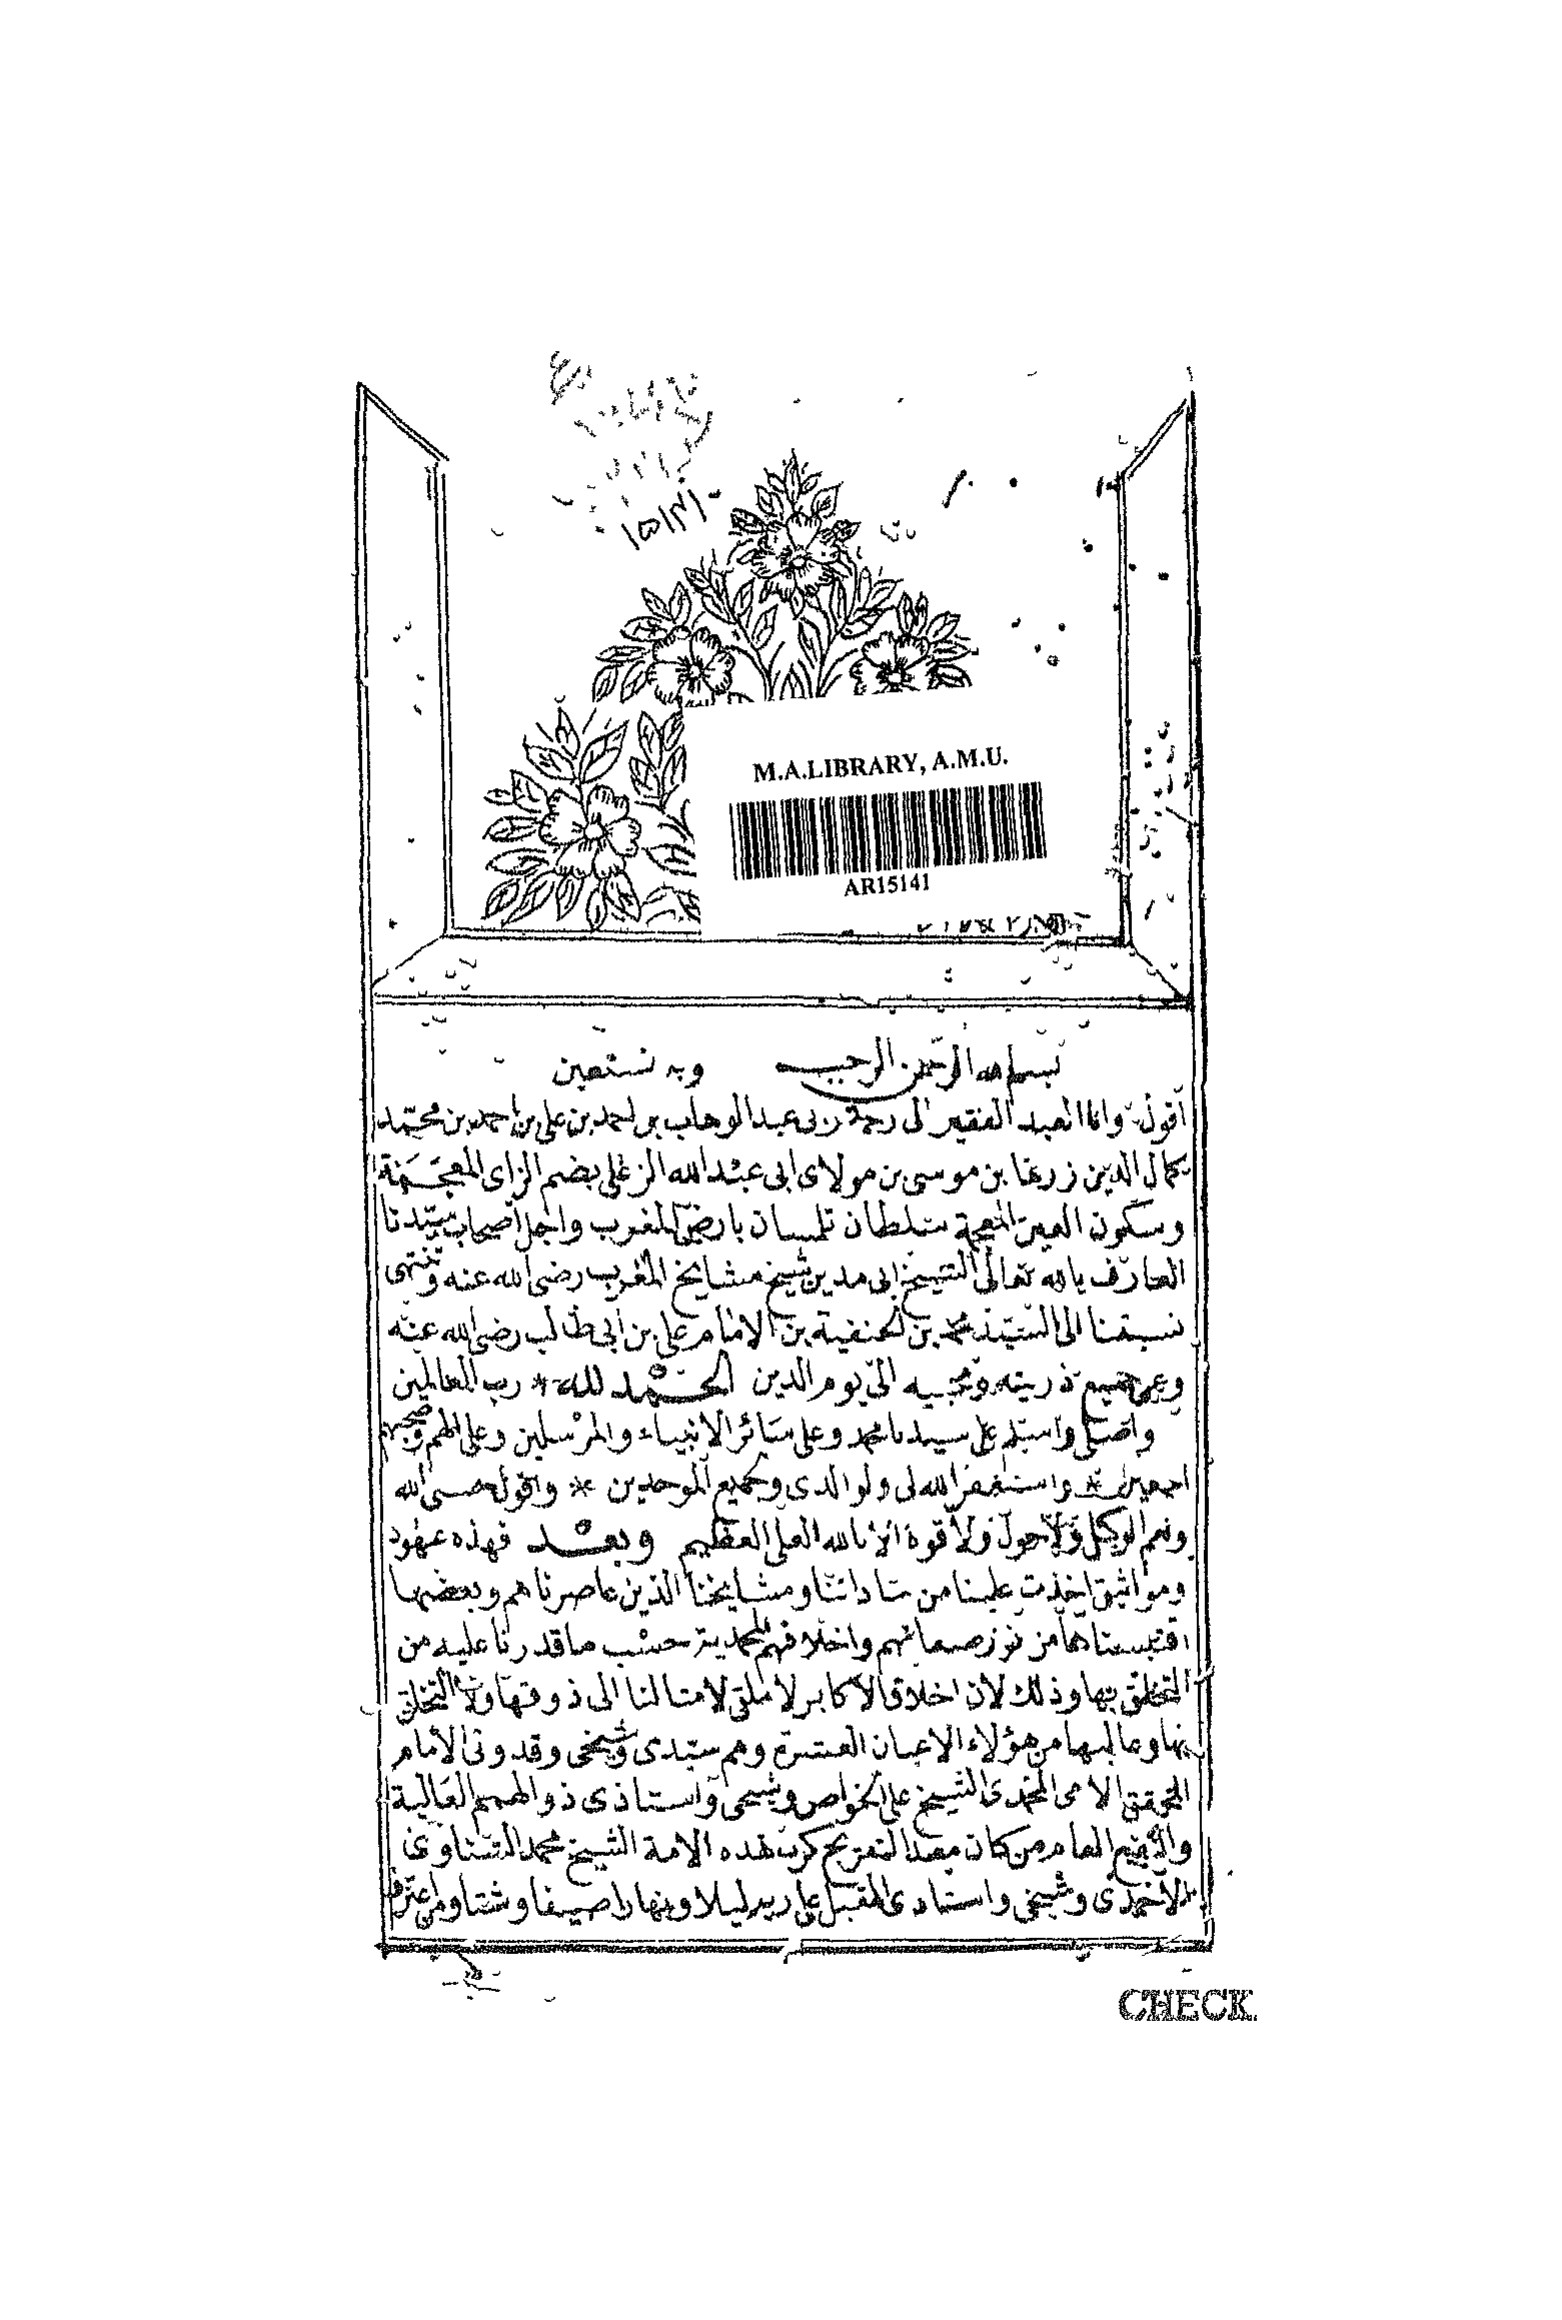 ١٥١٤١
M.A.LIBRARY, A.M.U.
AR15141
بسم الله الرحمن الرحيم وبه نستعين
اقول وانا العبد الفقير الى رحمة ربى عبد الوهاب بن احمد بن على بن احمد بن محمد
بن موسى بن مولاى ابى عبد الله الزغلى بضم الزاى المعجمة
وسكون الغين المعجمة سلطان تلمسان بارض المغرب واجل اصحاب سيدنا
العارف بالله تعالى الشيخ ابى مدين شيخ مشايخ المغرب رضى الله عنه وتنتهى
نسبتنا الى السيد محمد بن الحنفية بن الامام على بن ابى طالب رضى الله عنه
وعن جميع ذريته ومحبيه الى يوم الدين الحمد لله * رب العالمين
واصلى واسلم على سيدنا محمد وعلى سائر الانبياء والمرسلين وعلى الهم وصحبهم
اجمعين * واستغفر الله لى ولوالدى وجميع الموحدين * واقول حسبى الله
ونعم الوكيل ولا حول ولا قوة الا بالله العلى العظيم وبعد فهذه عهود
ومواثيق اخذت علينا من ساداتنا ومشايخنا الذين عاصرناهم وبعضها
اقتبسناها من نور صفاتهم واخلاقهم المحمدية حسب ما قدرنا عليه من
التخلق بها وذلك لان اخلاق الاكابر لا ملقى لامثالنا الى ذوقها ولا التخلق
بها وغالبها من هؤلاء الاعيان العشرة وهم سيدى وشيخى وقدوتى الامام
المحقق الامى المحمدى الشيخ على الخواص وشيخى واستاذى ذو الهمم العالية
والنفع العام من كان معد التفريج كرب هذه الامة الشيخ محمد الشناوى
الاحمدى وشيخى واستاذى المقبل على ربه ليلا ونهارا صيفا وشتاء ومن اعترف
CHECK.